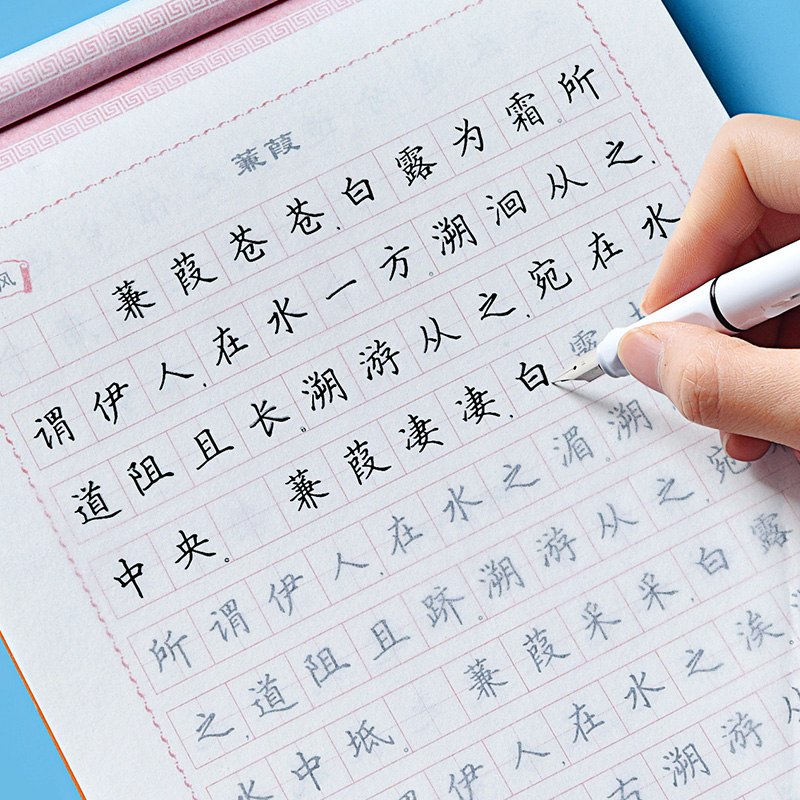 蒹葭
风
蒹葭苍苍,白露为霜。所
谓伊人,在水一方。溯洄从之,
道阻且长。溯游从之,宛在水
中央。 蒹葭凄凄,白露
所谓伊人,在水之湄。溯
之,道阻且跻。溯游从之,宛
水中坻。 蒹葭采采,白露
伊人,在水之涘。
右。溯游从